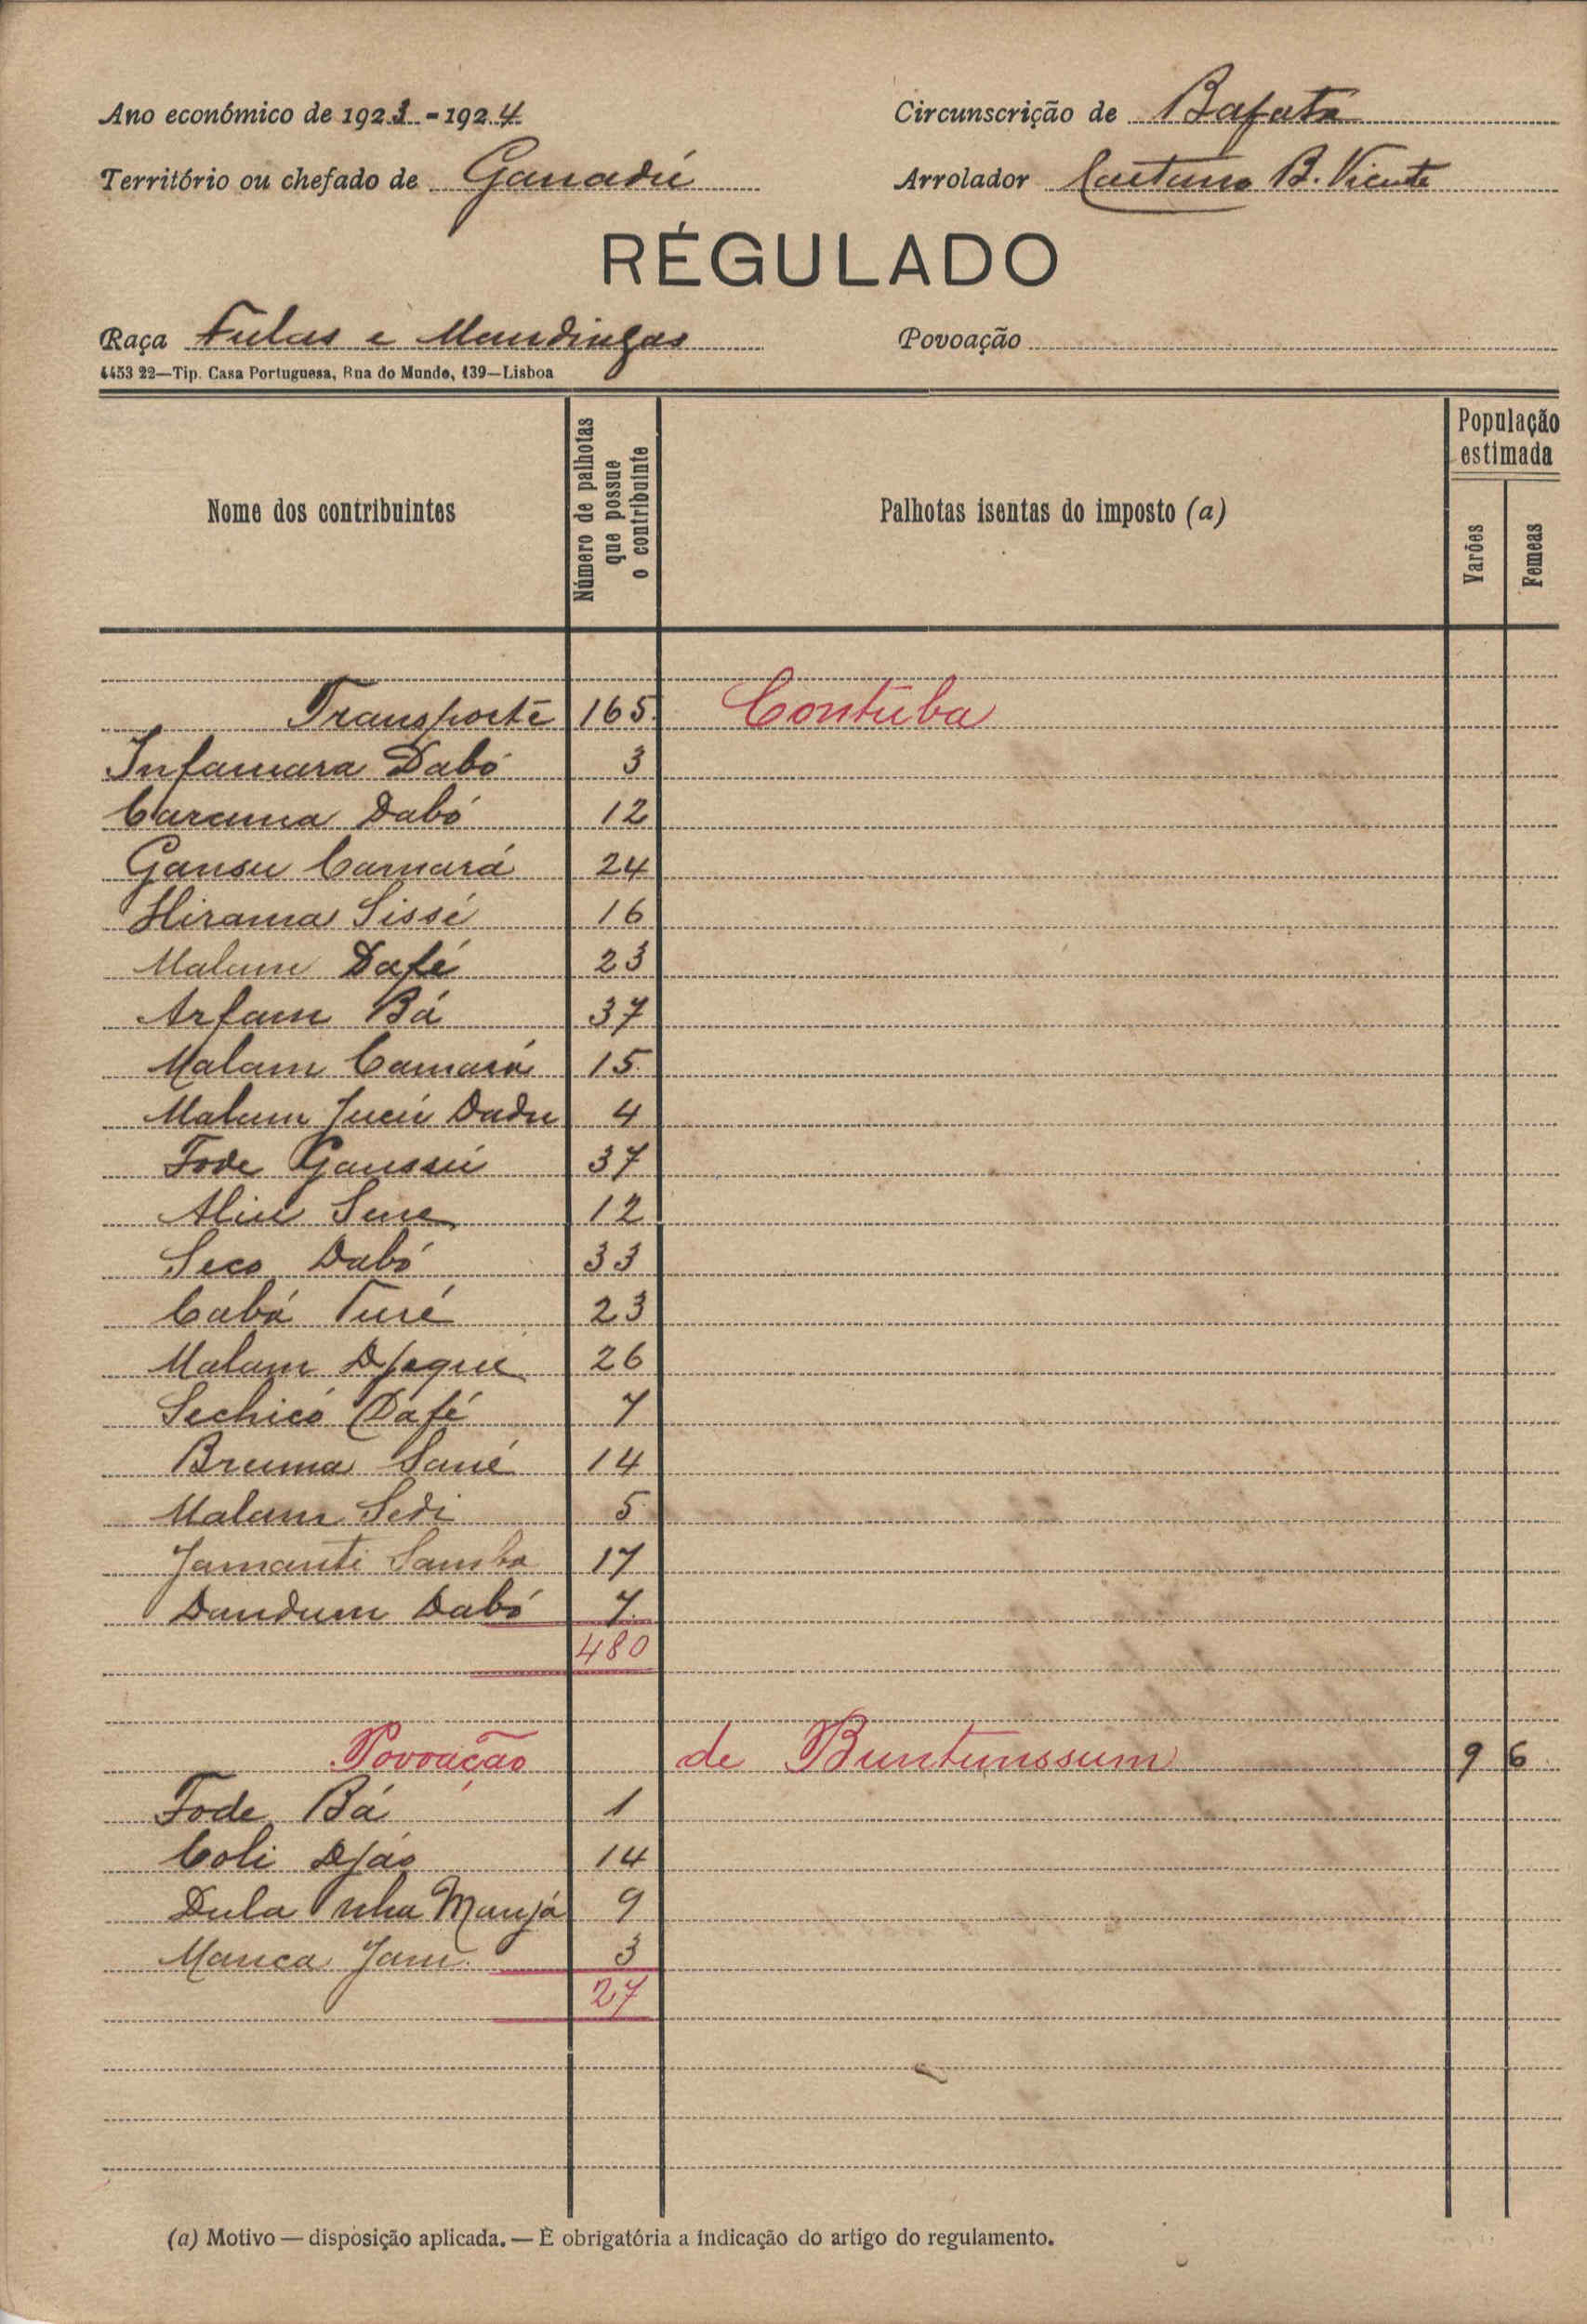 Ano económico de 1923-1924
Circunscrição de Bafatá
Território ou chefado de Ganadú
Arrolador Caetano B. Vicente
RÉGULADO
Raça Fulas e Mandingas
Povoação
4453 22—Tip. Casa Portuguesa, Rua do Mundo, 139—Lisboa
Nome dos contribuintes
Número de palhotas que possue o contribuinte
Palhotas isentas do imposto (a)
População estimada
Varões
Femeas
Transporte 165 Contúba
Infamara Dabó 3
Caramá Dabó 12
Gansu Camará 24
Hirama Sissé 16
Malam Dafé 23
Arfam Bá 37
Malam Camará 15
Malam Dadu 4
Fode Gaussú 37
Aliu Sene 12
Seco Dabó 33
Cabá Turé 23
Malam Djaqué 26
Sechicó Dafé 7
Breima Sané 14
Malam Sedi 5
Jamanti Samba 17
Dandum Dabó 7
480
Povoação de Buntunssum 9 6
Fode Bá 1
Coli Djáo 14
Dula nha Manjá 9
Manca Jam 3
27
(a) Motivo — disposição aplicada. — É obrigatória a indicação do artigo do regulamento.